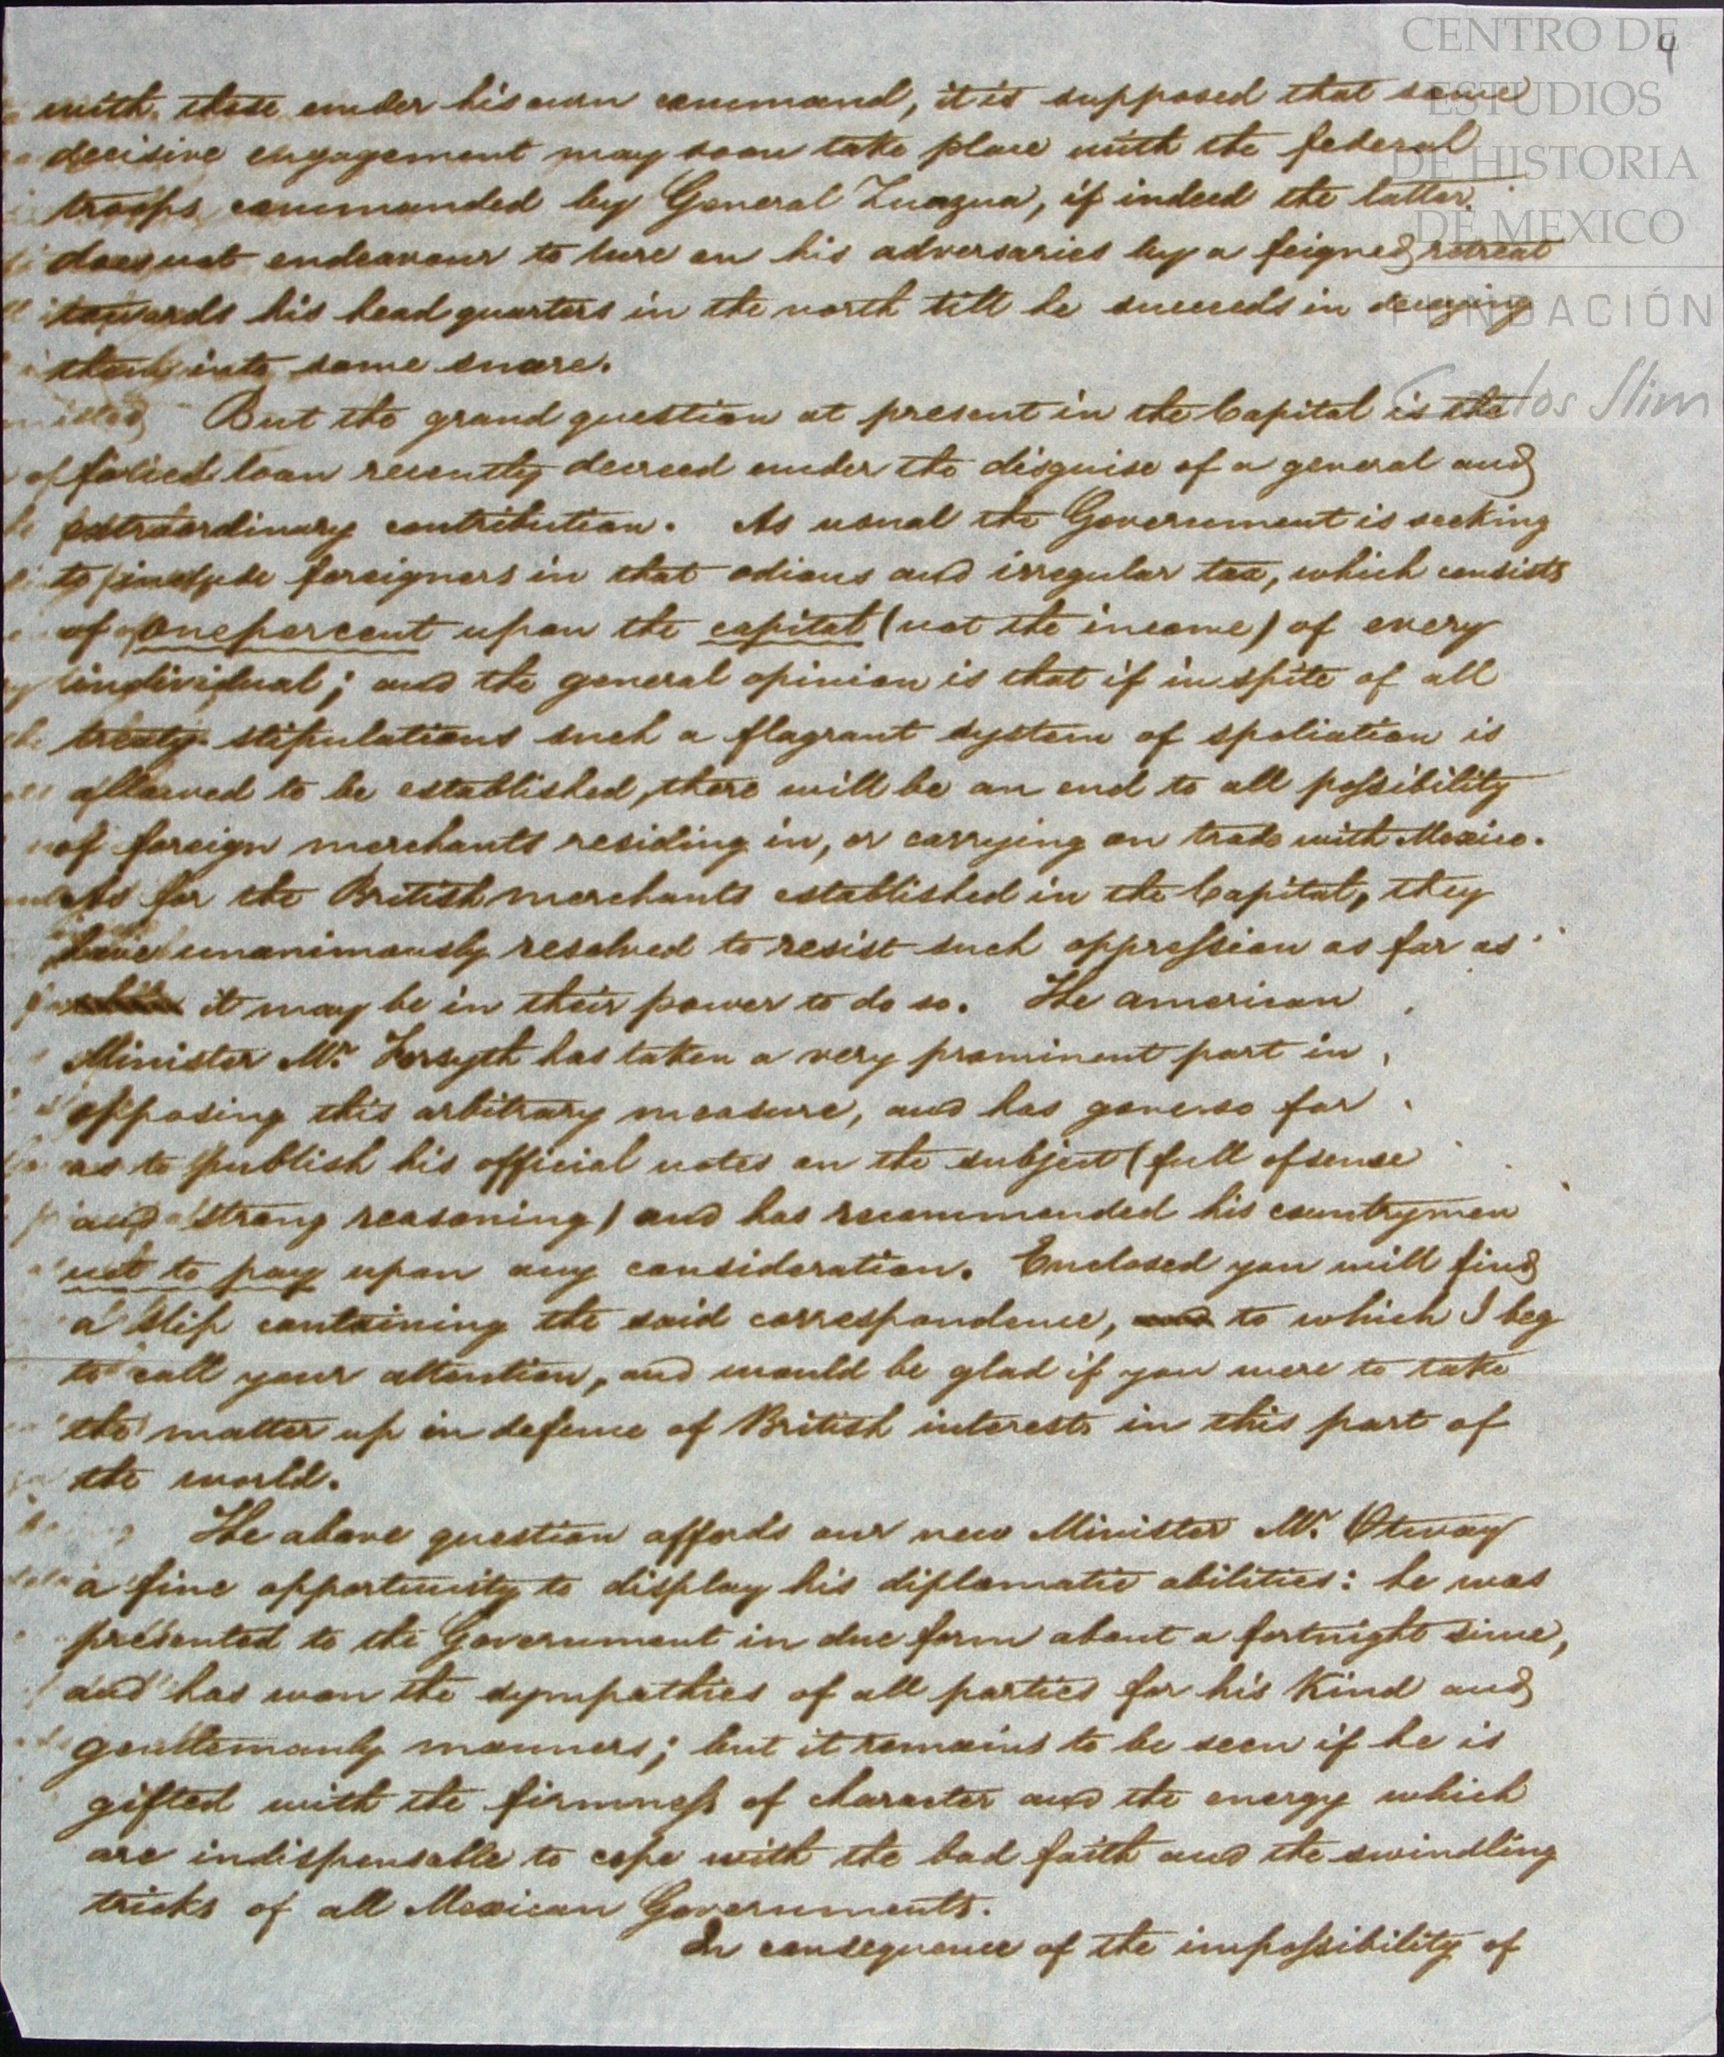 CENTRO DE
ESTUDIOS
DE HISTORIA
DE MEXICO
FUNDACIÓN
Carlos Slim
4
with those under his own command, it is supposed that some
decisive engagement may soon take place with the federal
troops commanded by General Zuazua, if indeed the latter
does not endeavour to lure on his adversaries by a feigned retreat
towards his head quarters in the north till he succeeds in decoying
them into some snare.
But the grand question at present in the Capital is the
forced loan recently decreed under the disguise of a general and
extraordinary contribution. As usual the Government is seeking
to include foreigners in that odious and irregular tax, which consists
of one per cent upon the capital (not the income) of every
individual; and the general opinion is that if in spite of all
treaty stipulations such a flagrant system of spoliation is
allowed to be established, there will be an end to all possibility
of foreign merchants residing in, or carrying on trade with Mexico.
As for the British merchants established in the Capital, they
have unanimously resolved to resist such oppression as far as
it may be in their power to do so. The American
Minister Mr. Forsyth has taken a very prominent part in
opposing this arbitrary measure, and has gone so far
as to publish his official notes on the subject (full of sense
and strong reasoning) and has recommended his countrymen
not to pay upon any consideration. Enclosed you will find
a slip containing the said correspondence, and to which I beg
to call your attention, and would be glad if you were to take
the matter up in defence of British interests in this part of
the world.
The above question affords our new Minister Mr. Otway
a fine opportunity to display his diplomatic abilities: he was
presented to the Government in due form about a fortnight since,
and has won the sympathies of all parties for his kind and
gentlemanly manners; but it remains to be seen if he is
gifted with the firmness of character and the energy which
are indispensable to cope with the bad faith and the swindling
tricks of all Mexican Governments.
In consequence of the impossibility of